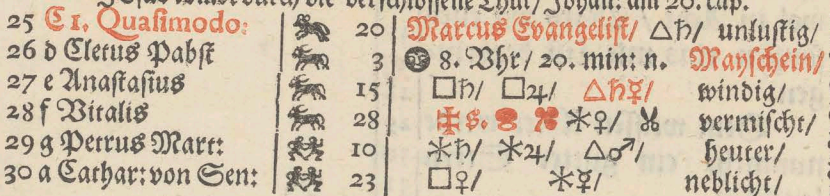 Jesus durch die verschlossene Thür/ Johan: am 20. cap.
25 C 1. Quasimodo: 20 Marcus Evangelist/ △♄/ unlustig/
26 d Cletus Pabst 3 8. Vhr/ 20. min: n. Mayschein/
27 e Anastasius 15 □♄/ □♃/ △♄☿/ windig/
28 f Vitalis 28 ✠ s. ✶♀/ vermischt/
29 g Petrus Mart: 10 ✶♄/ ✶♃/ △♂/ heuter/
30 a Cathar: von Sen: 23 □♀/ ✶☿/ neblicht/